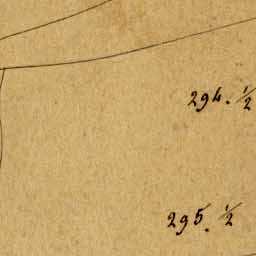 294. 1/2
295. 1/2